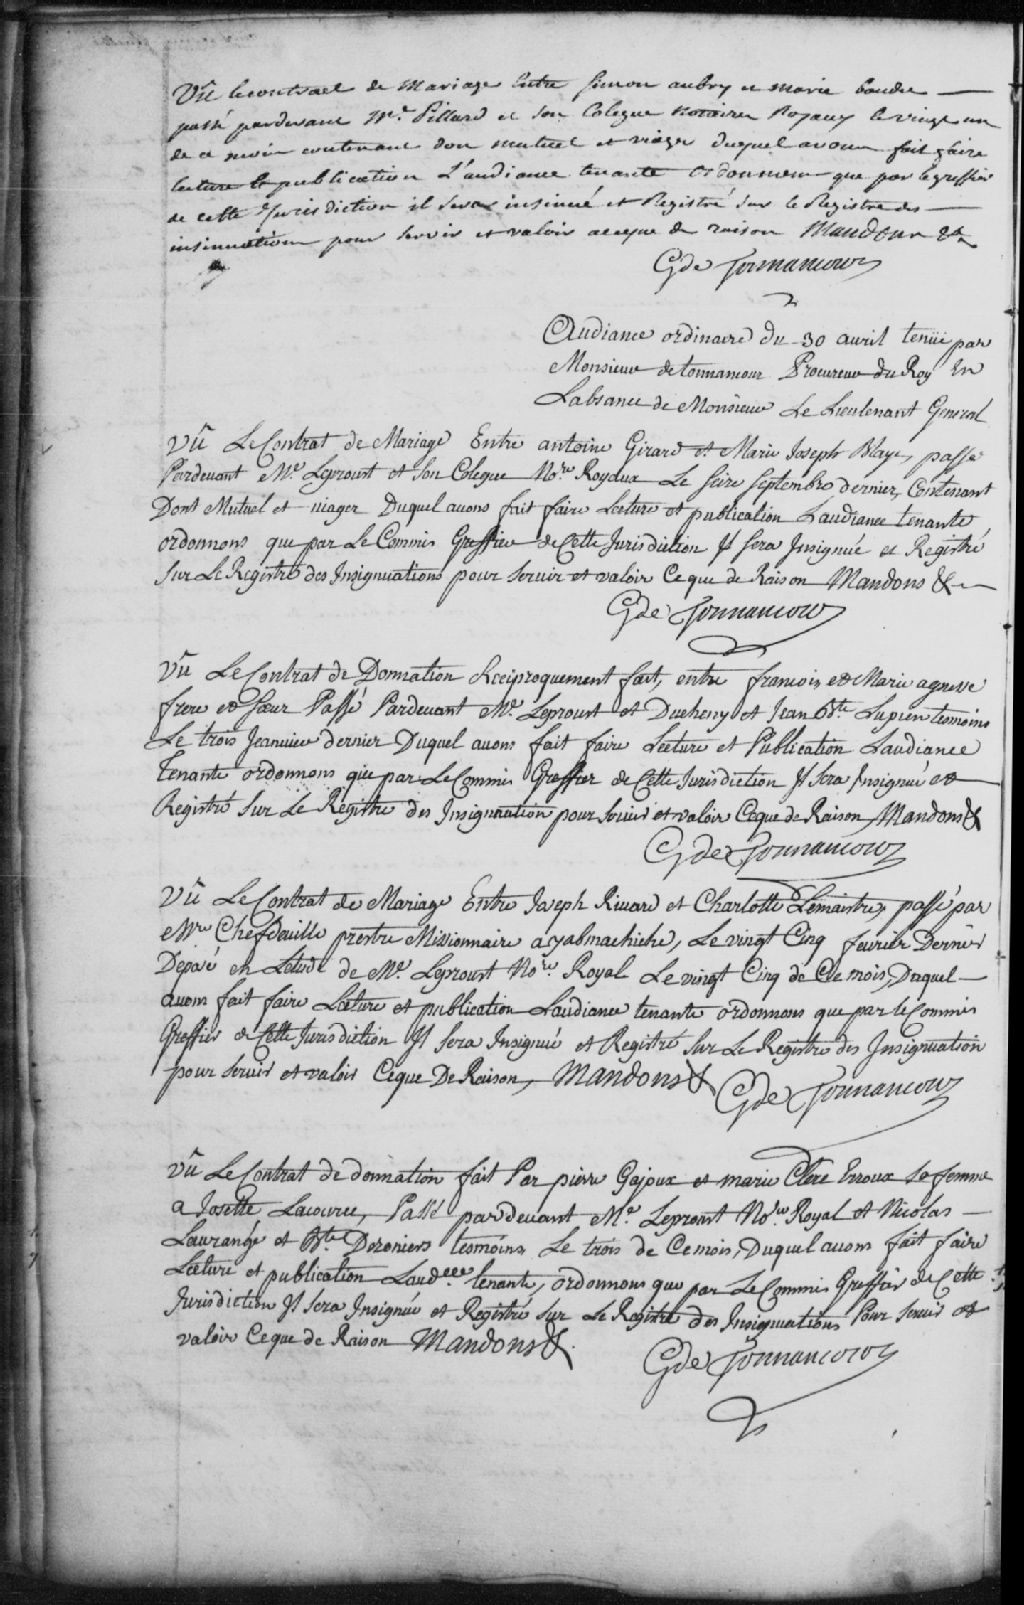 Vû le contract de Mariage Entre Simon aubry et Marie baudet
passé pardevant Mr. Pillard et son Colegue notaires Royaux le vingt un
de ce mois contenant don mutuel et viager duquel avons fait faire
lecture & publication L'audiance tenante ordonnons que par le greffier
de cette Jurisdiction il sera insinué et Registré sur le Registre des
insinuations pour servir et valoir ceque de raison Mandons &a
Gde Tonnancour
Audiance ordinaire du 30 avril tenüe par
Monsieur de tonnancour Procureur du Roy En
Labsance de Monsieur Le Lieutenant General
Vû Le Contrat de Mariage Entre antoine Girard et Marie Joseph Blaye, passé
Pardevant Me. Leproust et Son Colegue No.re Royaux Le Seize Septembre dernier, Contenant
Dont Mutuel et viager Duquel avons fait faire Lecture et publication Laudiance tenante
ordonnons que par Le Commis Greffier de Cette Jurisdiction Jl Sera Jnsignué et Registré
Sur Le Registre des Jnsignuations pour Servir et valoir Ceque de Raison Mandons &
Gde Tonnancour
Vû Le Contrat de Donnation Reciproquement fait, entre francois et Marie
frere et Sœur Passé Pardevant Me. Leproust et Ducheny et Jean Bte. Lupien tesmoins
Le trois Jeanvier dernier Duquel avons fait faire Lecture et Publication Laudiance
tenante ordonnons que par Le Commis Greffier de Cette Jurisdiction Jl Sera Jnsignué et
Registré Sur Le Registre des Jnsignuation pour Servir et valoir Ceque de Raison Mandons &
Gde Tonnancour
Vû Le Contrat de Mariage Entre Joseph Rivard et Charlotte Lemaistre, passé par
Mre Chefdeville prestre Missionnaire a yabmachiche, Le vingt Cinq fevrier Dernier
Déposé en Letude de Me. Leproust No.re Royal Le vingt Cinq de Ce mois, Duquel
avons fait faire Lecture et publication Laudiance tenante ordonnons que par le Commis
Greffier de Cette Jurisdiction Jl Sera Jnsignué et Registré Sur Le Registre des Jnsignuation
pour Servir et valoir Ceque De Raison, Mandons &
Gde Tonnancour
Vû Le Contrat de donnation fait Par pierre Gajoux et marie Clere Erroux Sa femme
a Josette Lacource, Passé pardevant Me Leproust No.re Royal et Nicolas
Laurangé et Bte Deroniers tesmoins Le trois de Cemois, Duquel avons fait faire
Lecture et publication Laud.ce tenante, ordonnons que par Le Commis Greffier de Cette
Jurisdiction Jl Sera Jnsignué et Registré Sur Le Registre des Jnsignuations Pour Servir et
valoir Ceque de Raison Mandons &.
Gde Tonnancour